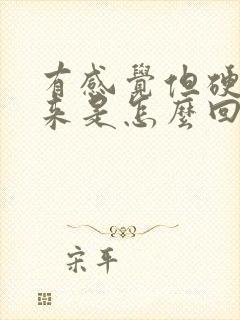 有感覺但硬
來是怎麼回
宋平